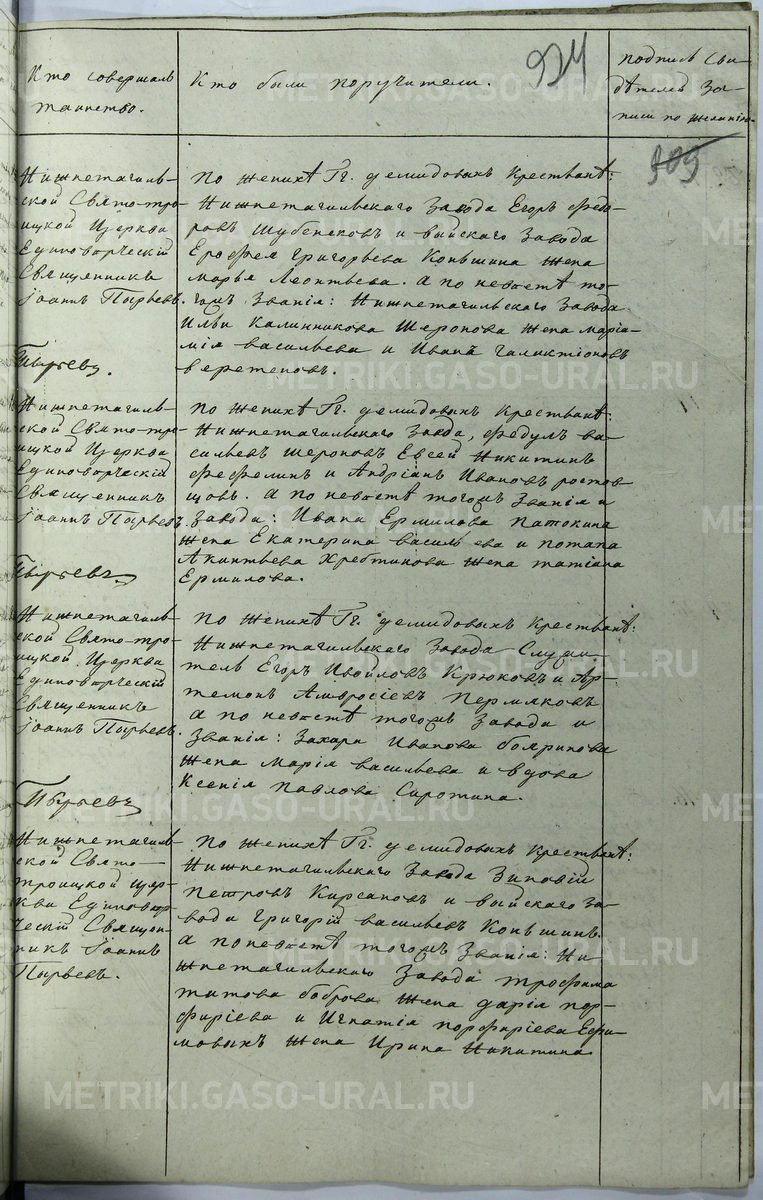 924
Кто совершалъ
таинство.
Кто были поручители.
подпись Сви-
дѣтелей За-
писи по желанію.
905
Нижнетагиль-
ской Свято-тро-
ицкой Церкви
Единоверческій
Священникъ
Іоаннъ Пырьевъ.
Пырьевъ
По женихѣ Гг. демидовыхъ Крестьяне:
Нижнетагильскаго Завода Егоръ Федо-
ровъ Шубенковъ и выйскаго Завода
Ерофея Григорьева Коньшина жена
Марья Леонтьева. а по невѣстѣ то-
гожъ Званія: Нижнетагильскаго Завода
Ильи Калинникова Шеронова жена Маріа-
мія васильева и Иванъ Галактіоновъ
веретеновъ.
Нижнетагиль-
ской Свято-тро-
ицкой Церкви
Единоверческій
Священникъ
Іоаннъ Пырьевъ.
Пырьевъ
По женихѣ Гг. демидовыхъ Крестьяне:
Нижнетагильскаго Завода, Федулъ ва-
сильевъ Шероновъ Евсей Никитинъ
Фефелинъ и Андріанъ Ивановъ ростов-
щовъ. а по невѣстѣ тогожъ Званія и
Завода: Ивана Ермилова Патокина
жена Екатерина васильева и Потапа
Акинтьева Хребтикова жена татіана
Ермилова.
Нижнетагиль-
ской Свято-тро-
ицкой Церкви
Единоверческій
Священникъ
Іоаннъ Пырьевъ.
Пырьевъ
По женихѣ Гг. демидовыхъ Крестьяне:
Нижнетагильскаго Завода Служи-
тель Егоръ Ивойловъ Крюковъ и Ар-
темонъ Амвросіевъ Пермяковъ
а по невѣстѣ тогожъ Завода и
Званія: Захара Иванова бояринова
жена Марія васильева и вдова
Ксенія Павлова Сиротина.
Нижнетагиль-
ской Свято-
троицкой Цер-
кви Единовер-
ческій Священ-
никъ Іоаннъ
Пырьевъ.
По женихѣ Гг. демидовыхъ Крестьяне:
Нижнетагильскаго Завода Зиновій
Петровъ Кирсановъ и выйскаго За-
вода Григорій васильевъ Коньшинъ.
а по невѣстѣ тогожъ Званія: Ни-
жнетагильскаго Завода трофима
титова боброва жена дарія пор-
фиріева и Игнатія порфиріева Ефи-
мовыхъ жена Ирина Никитина.
METRIKI.GASO-URAL.RU